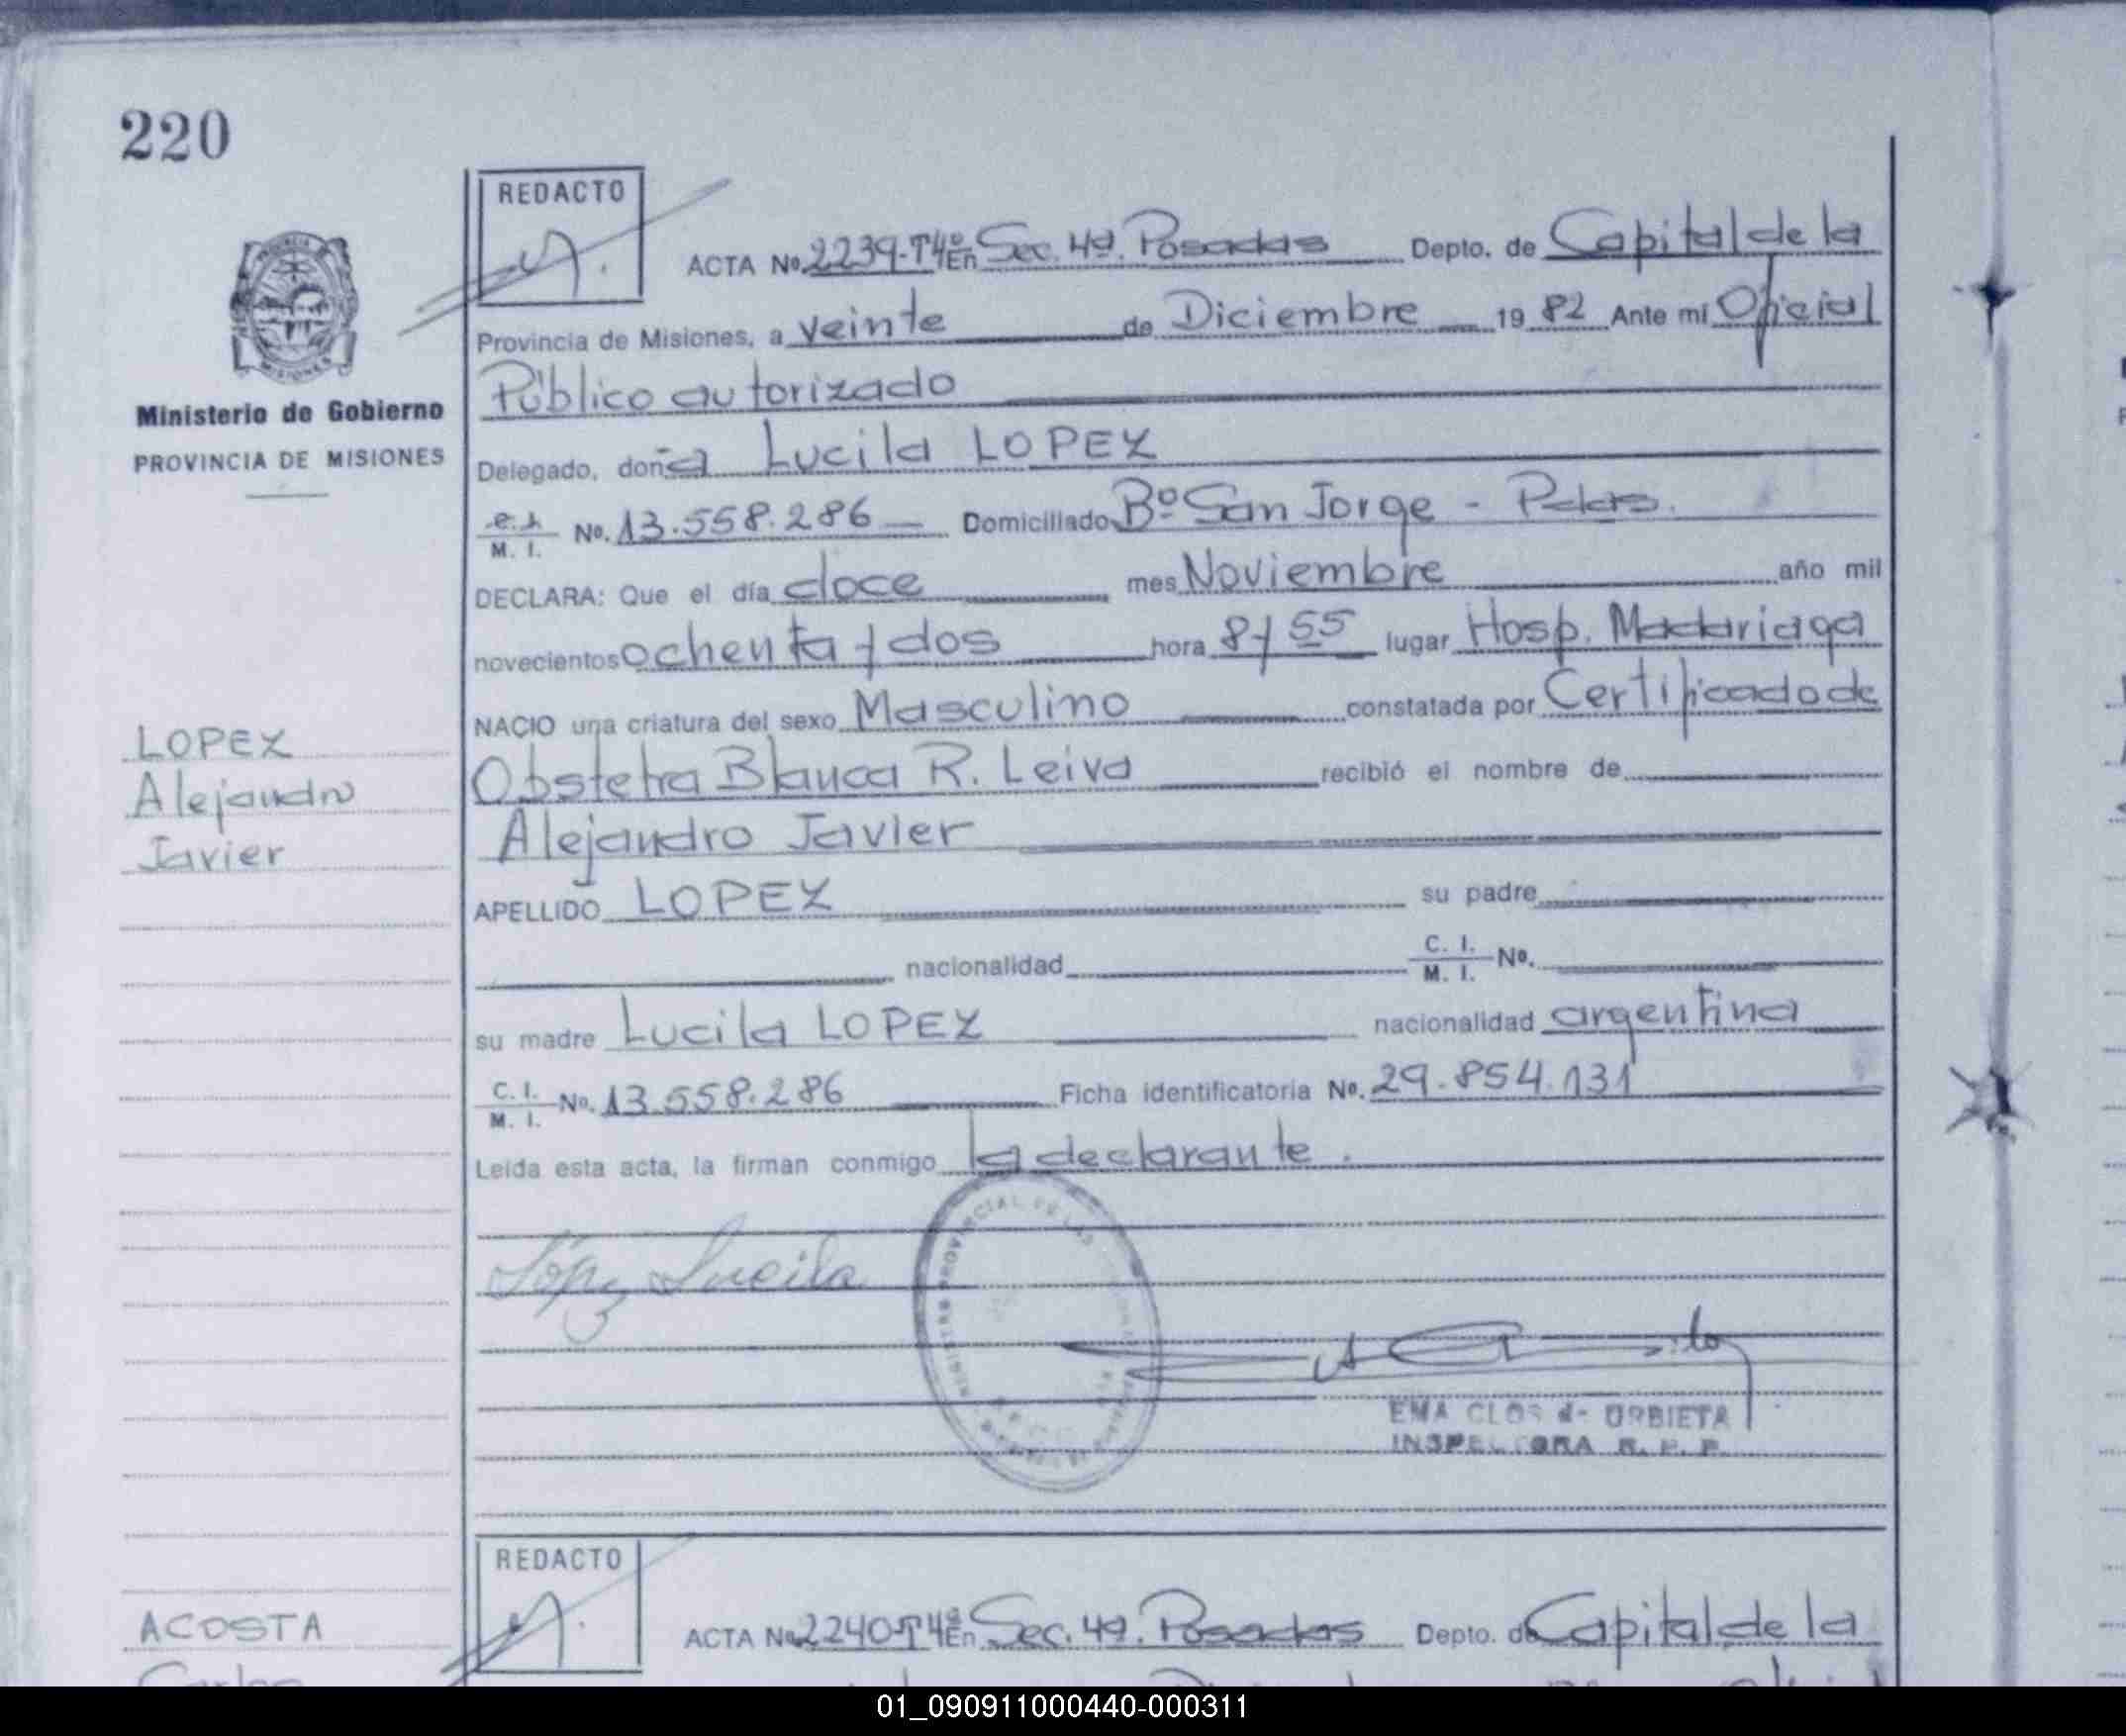 220
REDACTO
ACTA No. 2239-T4º En Sec. 4ª. Posadas Depto. de Capital de la
Provincia de Misiones, a veinte de Diciembre 1982 Ante mí Oficial
Público autorizado
Ministerio de Gobierno
PROVINCIA DE MISIONES
Delegado, doña Lucila LOPEZ
M. I. No. 13.558.286 Domiciliado Bº San Jorge - Pdas.
DECLARA: Que el día doce mes Noviembre año mil
novecientos ochenta y dos hora 8 y 55 lugar Hosp. Madariaga
NACIO una criatura del sexo Masculino constatada por Certificado de
Obstetra Blanca R. Leiva recibió el nombre de
Alejandro Javier
LOPEZ
Alejandro
Javier
APELLIDO LOPEZ su padre
nacionalidad C. I. M. I. No.
su madre Lucila LOPEZ nacionalidad argentina
C. I. M. I. No. 13.558.286 Ficha identificatoria No. 29.854.131
Leída esta acta, la firman conmigo la declarante.
López Lucila
EMA CLOS de URBIETA
INSPECTORA R. P. P.
REDACTO
ACTA No. 2240-T4º En Sec. 4ª. Posadas Depto. de Capital de la
ACOSTA
Carlos
01_090911000440-000311